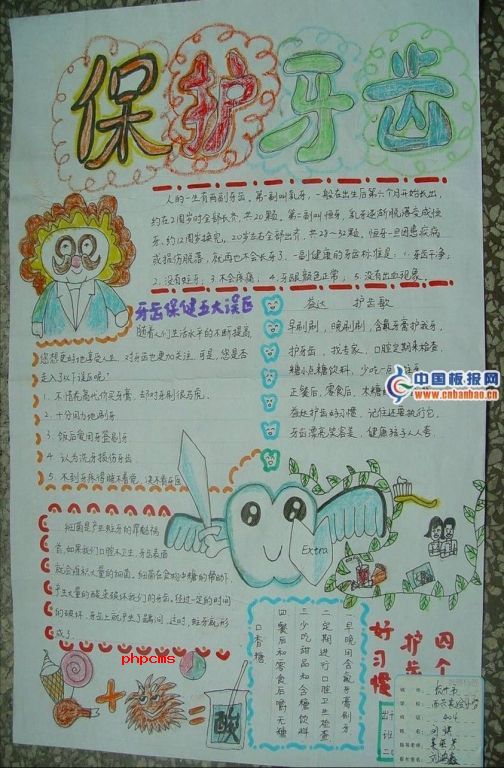 保护牙齿
人的一生有两副牙齿。第一副叫乳牙，一般在出生后第六个月开始长出，
约在2周岁时全部长齐，共20颗。第二副叫恒牙，乳牙逐渐脱落变成恒
牙，约12周岁换完，20岁左右全部出齐，共28～32颗，恒牙一旦因患疾病
或损伤脱落，就再也不会长牙了。一副健康的牙齿标准是：1.牙齿干净；
2.没有蛀牙；3.不会疼痛；4.牙龈颜色正常；5.没有出血现象。
牙齿保健五大误区
随着人们生活水平的不断提高
您想更好地享受人生，对牙齿也更加关注，可是，您是否
走入了以下误区呢？
1.不惜花高代价买牙膏，
2.十分用力地刷牙
3.饭后爱用牙签剔牙
4.认为洗牙损伤牙齿
5.不到牙疼得睡不着觉，决不看牙医
益达 护齿歌
早刷刷，晚刷刷，含氟牙膏护我牙，
护牙齿，找专家，口腔定期来检查，
糖小点糖饮料，少吃
正餐后，零食后，木糖
益达护齿好习惯，记住还要执行它，
牙齿漂亮笑容美，健康孩子人人夸
中国板报网
www.cnbanbao.cn
细菌是产生蛀牙的罪魁祸
首，如果我们口腔不卫生，牙齿表面
就会堆积大量的细菌。细菌在食物中糖的帮助下，
产生大量的酸来破坏我们的牙齿，经过一定时间的
的破坏，牙齿上就产生了龋洞，这时，蛀牙就形
成了。
Extra
phpcms
+
=
酸
四个
护齿
好习惯
一早晚用含氟牙膏刷牙
二定期进行口腔卫生检查
三少吃甜品和含糖饮料
四餐后和零食后嚼无糖
口香糖
404